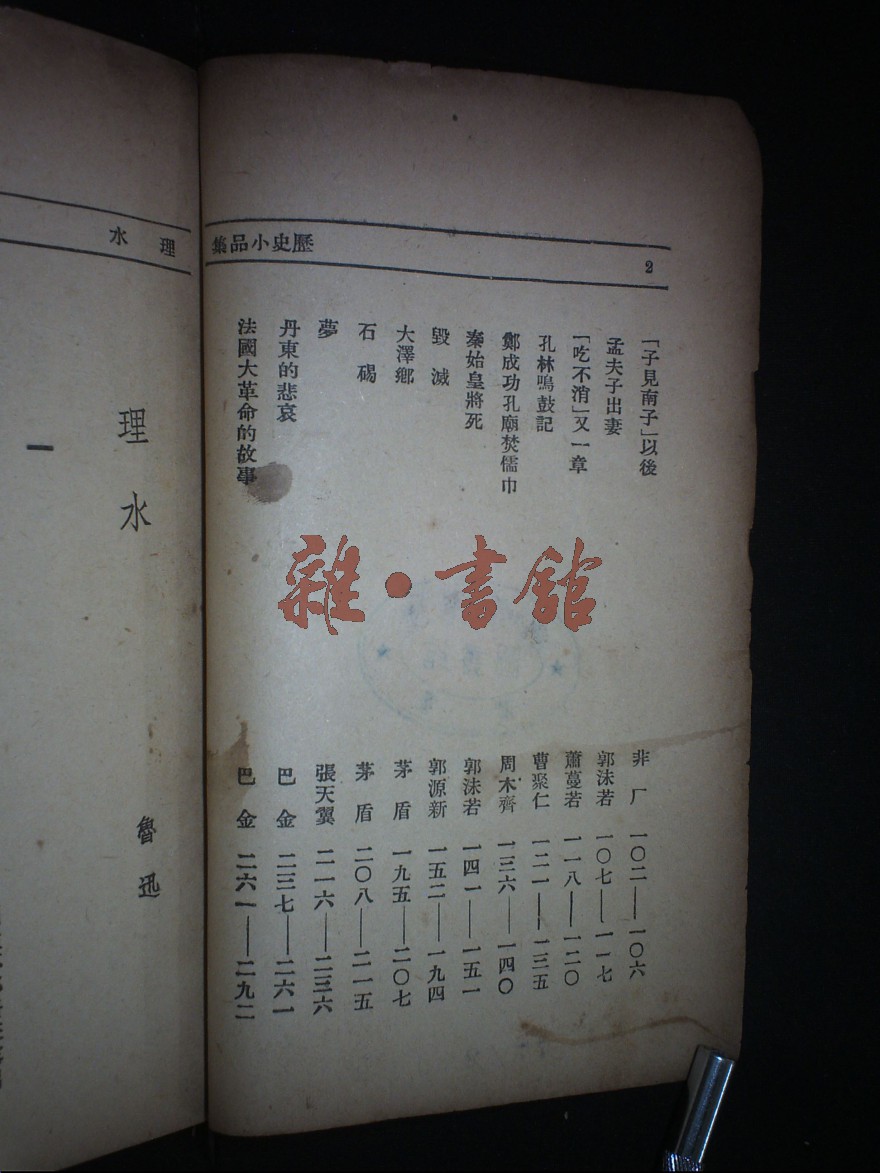 歷史小品集
2
「子見南子」以後 非厂 一〇二——一〇六
孟夫子出妻 郭沫若 一〇七——一一七
「吃不消」又一章 蕭蔓若 一一八——一二〇
孔林鳴鼓記 曹聚仁 一二一——一三五
鄭成功孔廟焚儒巾 周木齊 一三六——一四〇
秦始皇將死 郭沫若 一四一——一五一
毀滅 郭源新 一五二——一九四
大澤鄉 茅盾 一九五——二〇七
石碣 茅盾 二〇八——二一五
夢 張天翼 二一六——二三六
丹東的悲哀 巴金 二三七——二六一
法國大革命的故事 巴金 二六一——二九二
理水
理水
魯迅
一
雜·書館